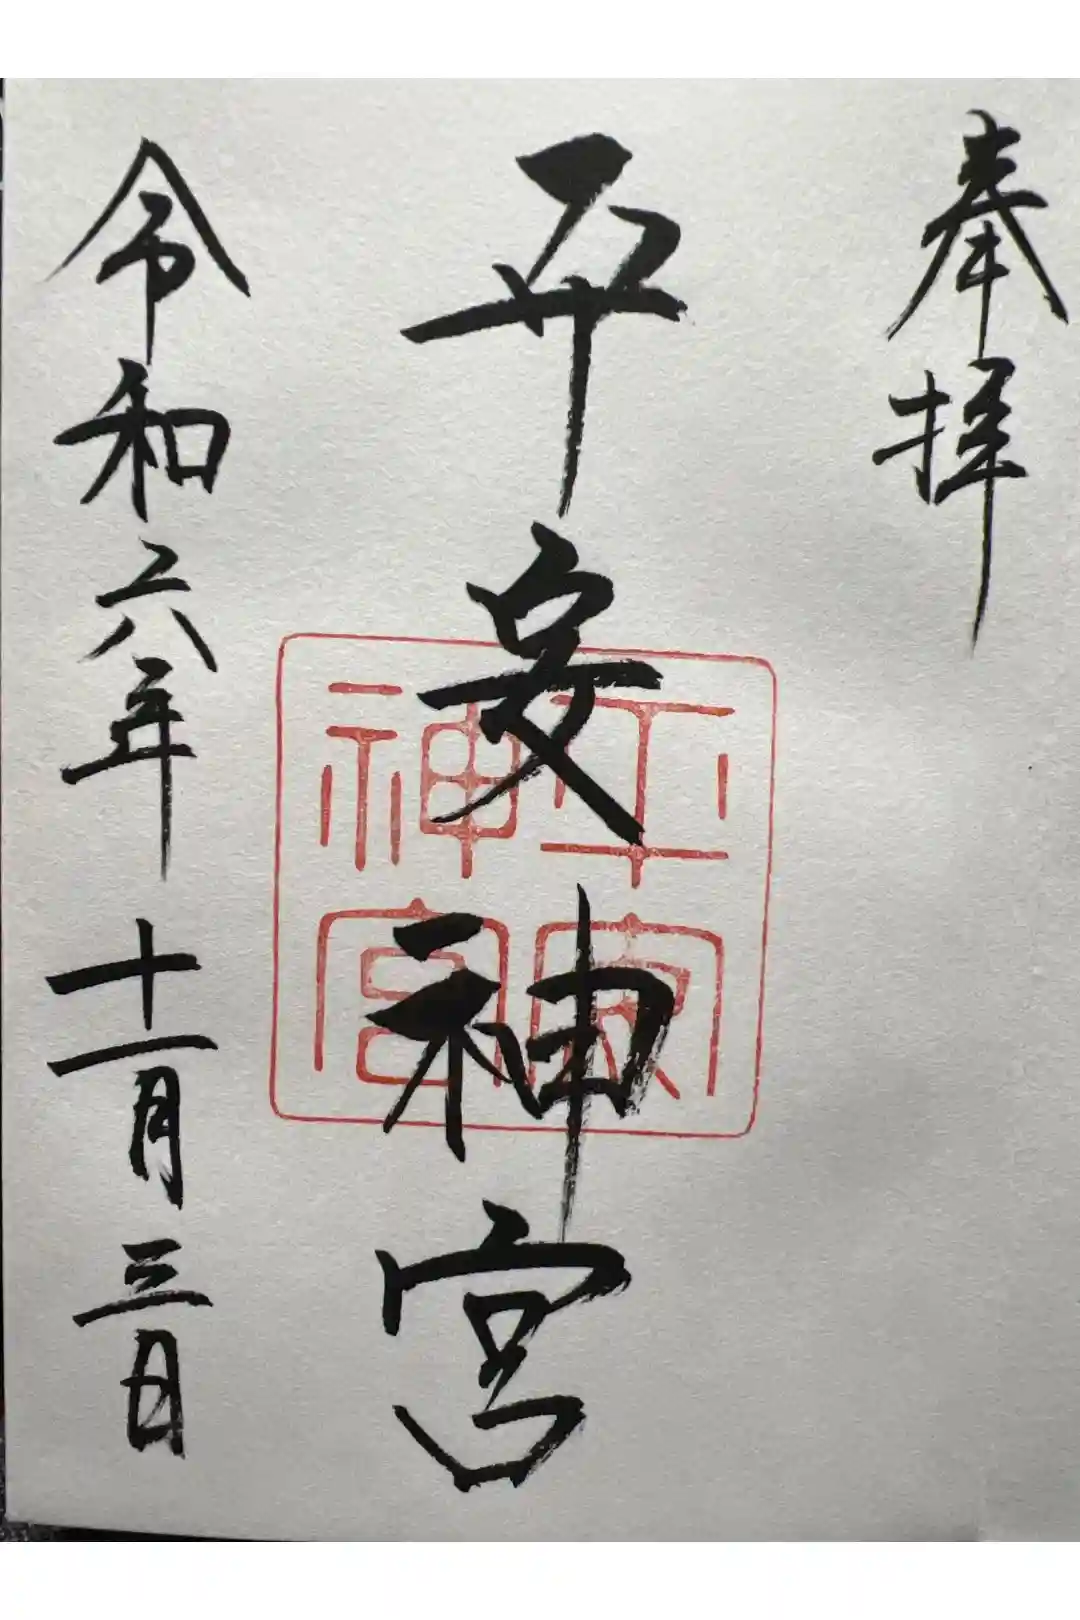 奉拝
平安神宮
平安神宮
令和六年十一月三日